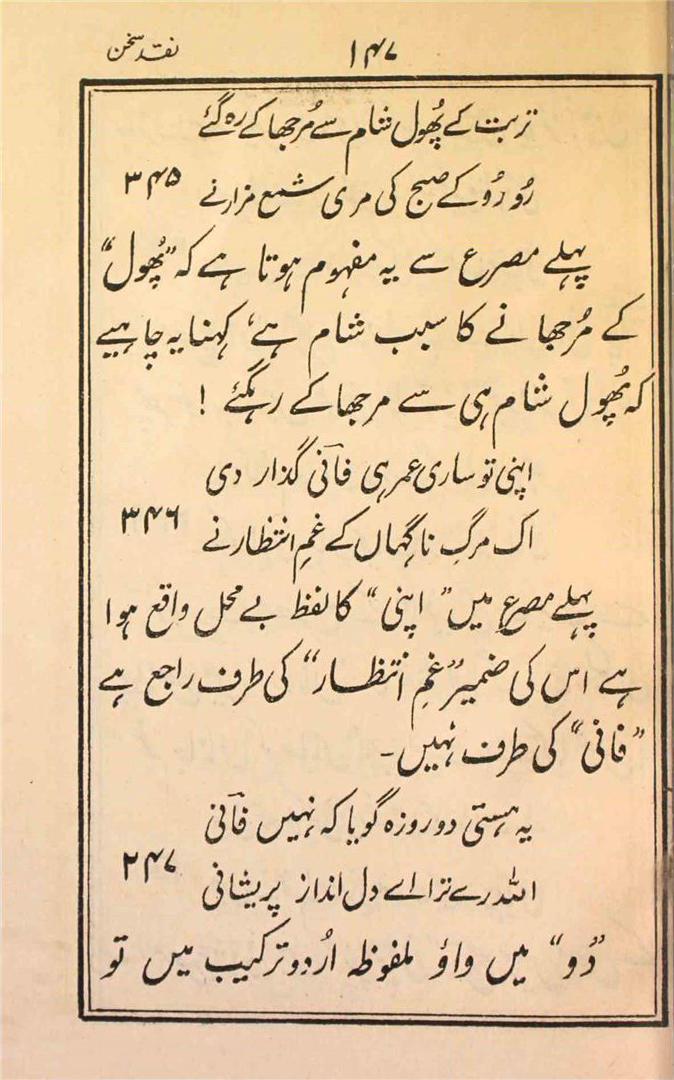 نقد سخن
۱۴۷
تربت کے پُھول شام سے مُرجھا کے رہ گئے
رُو رُو کے صبح کی مری شمع مزار نے ۳۴۵
پہلے مصرع سے یہ مفہوم ہوتا ہے کہ ”پُھول“
کے مُرجھانے کا سبب شام ہے، کہنا یہ چاہیے
کہ پُھول شام ہی سے مرجھا کے رہگئے !
اپنی تو ساری عمر ہی فانؔی گذار دی
اک مرگِ ناگہاں کے غمِ انتظار نے ۳۴۶
پہلے مصرع میں ”اپنی“ کا لفظ بے محل واقع ہوا
ہے اس کی ضمیر ”غمِ انتظار“ کی طرف راجع ہے
”فانی“ کی طرف نہیں۔
یہ ہستیِ دو روزہ گویا کہ نہیں فانؔی
اللہ رے ترا اے دل انداز پریشانی ۲۴۷
”دو“ میں واؤ ملفوظہ اُردو ترکیب میں تو